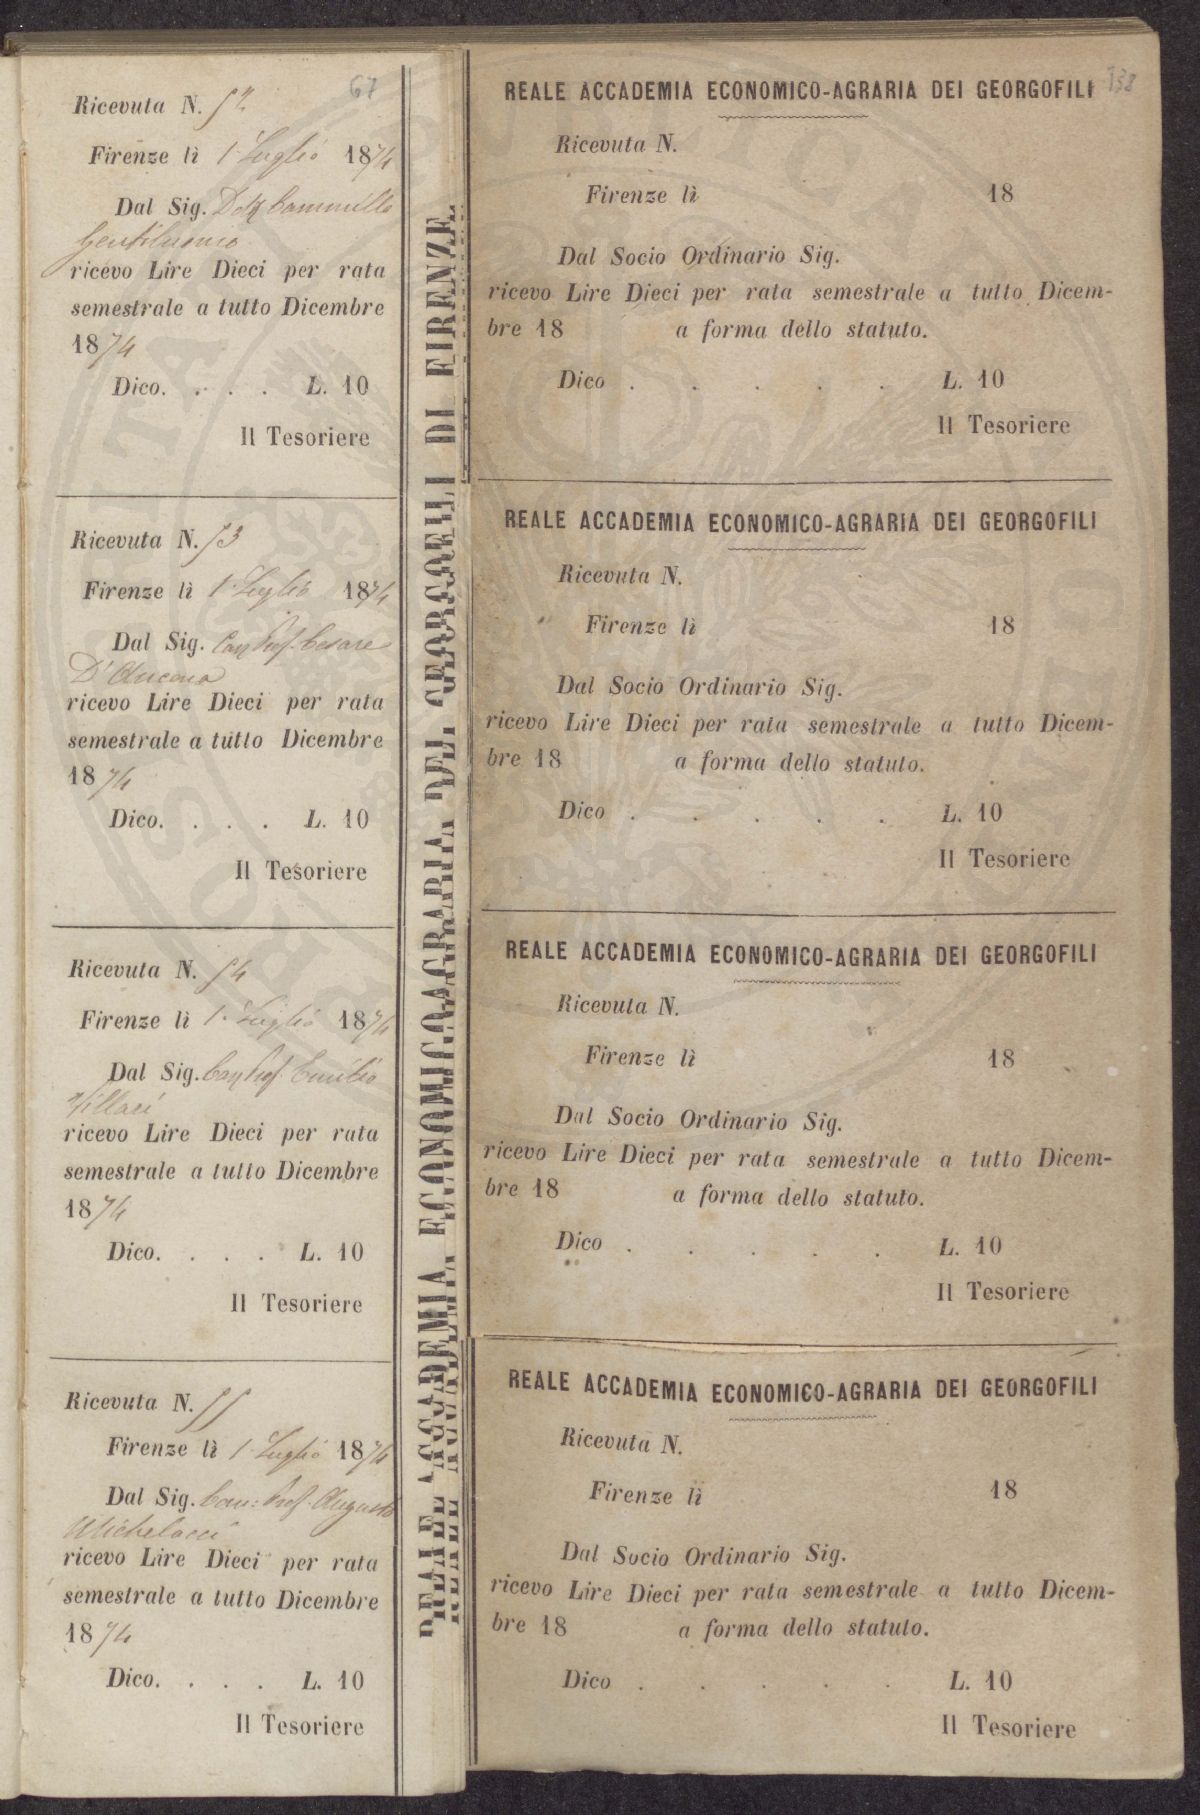 67
Ricevuta N. 52
Firenze lì 1° Luglio 1874
Dal Sig. Dott. Cammillo
Gentiluomo
ricevo Lire Dieci per rata
semestrale a tutto Dicembre
1874
Dico. . . . L. 10
Il Tesoriere
Ricevuta N. 53
Firenze lì 1° Luglio 1874
Dal Sig. Cav Prof. Cesare
D'Ancona
ricevo Lire Dieci per rata
semestrale a tutto Dicembre
1874
Dico. . . . L. 10
Il Tesoriere
Ricevuta N. 54
Firenze lì 1° Luglio 1874
Dal Sig. Cav Prof. Emilio
Villari
ricevo Lire Dieci per rata
semestrale a tutto Dicembre
1874
Dico. . . . L. 10
Il Tesoriere
Ricevuta N. 55
Firenze lì 1° Luglio 1874
Dal Sig. Cav: Prof. Augusto
Michelacci
ricevo Lire Dieci per rata
semestrale a tutto Dicembre
1874
Dico. . . . L. 10
Il Tesoriere
REALE ACCADEMIA ECONOMICO-AGRARIA DEI GEORGOFILI DI FIRENZE
138
REALE ACCADEMIA ECONOMICO-AGRARIA DEI GEORGOFILI
Ricevuta N.
Firenze lì 18
Dal Socio Ordinario Sig.
ricevo Lire Dieci per rata semestrale a tutto Dicem-
bre 18 a forma dello statuto.
Dico . . . . . L. 10
Il Tesoriere
REALE ACCADEMIA ECONOMICO-AGRARIA DEI GEORGOFILI
Ricevuta N.
Firenze lì 18
Dal Socio Ordinario Sig.
ricevo Lire Dieci per rata semestrale a tutto Dicem-
bre 18 a forma dello statuto.
Dico . . . . . L. 10
Il Tesoriere
REALE ACCADEMIA ECONOMICO-AGRARIA DEI GEORGOFILI
Ricevuta N.
Firenze lì 18
Dal Socio Ordinario Sig.
ricevo Lire Dieci per rata semestrale a tutto Dicem-
bre 18 a forma dello statuto.
Dico . . . . . L. 10
Il Tesoriere
REALE ACCADEMIA ECONOMICO-AGRARIA DEI GEORGOFILI
Ricevuta N.
Firenze lì 18
Dal Socio Ordinario Sig.
ricevo Lire Dieci per rata semestrale a tutto Dicem-
bre 18 a forma dello statuto.
Dico . . . . . L. 10
Il Tesoriere